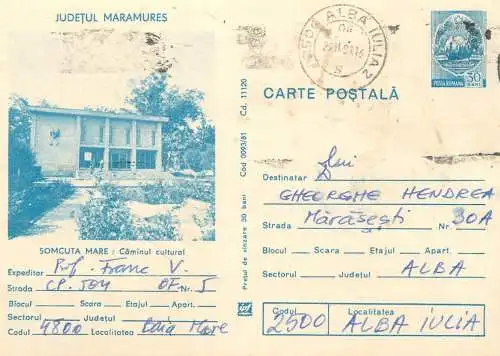 JUDEȚUL MARAMUREȘ
SOMCUTA MARE : Căminul cultural
Expeditor Prof. Franc V.
Strada CP. 584 OF Nr. 5
Blocul Scara Etajul Apart.
Sectorul Județul
Codul 4800 Localitatea Baia Mare
Prețul de vînzare 50 bani Cod 0093/81 Cd. 11120
2500 ALBA IULIA 2
POSTA ROMANA 30
CARTE POȘTALĂ
Destinatar Lui
GHEORGHE HENDREA
Strada Mărășești Nr. 30A
Blocul Scara Etajul Apart.
Sectorul Județul ALBA
Codul Localitatea
2500 ALBA IULIA